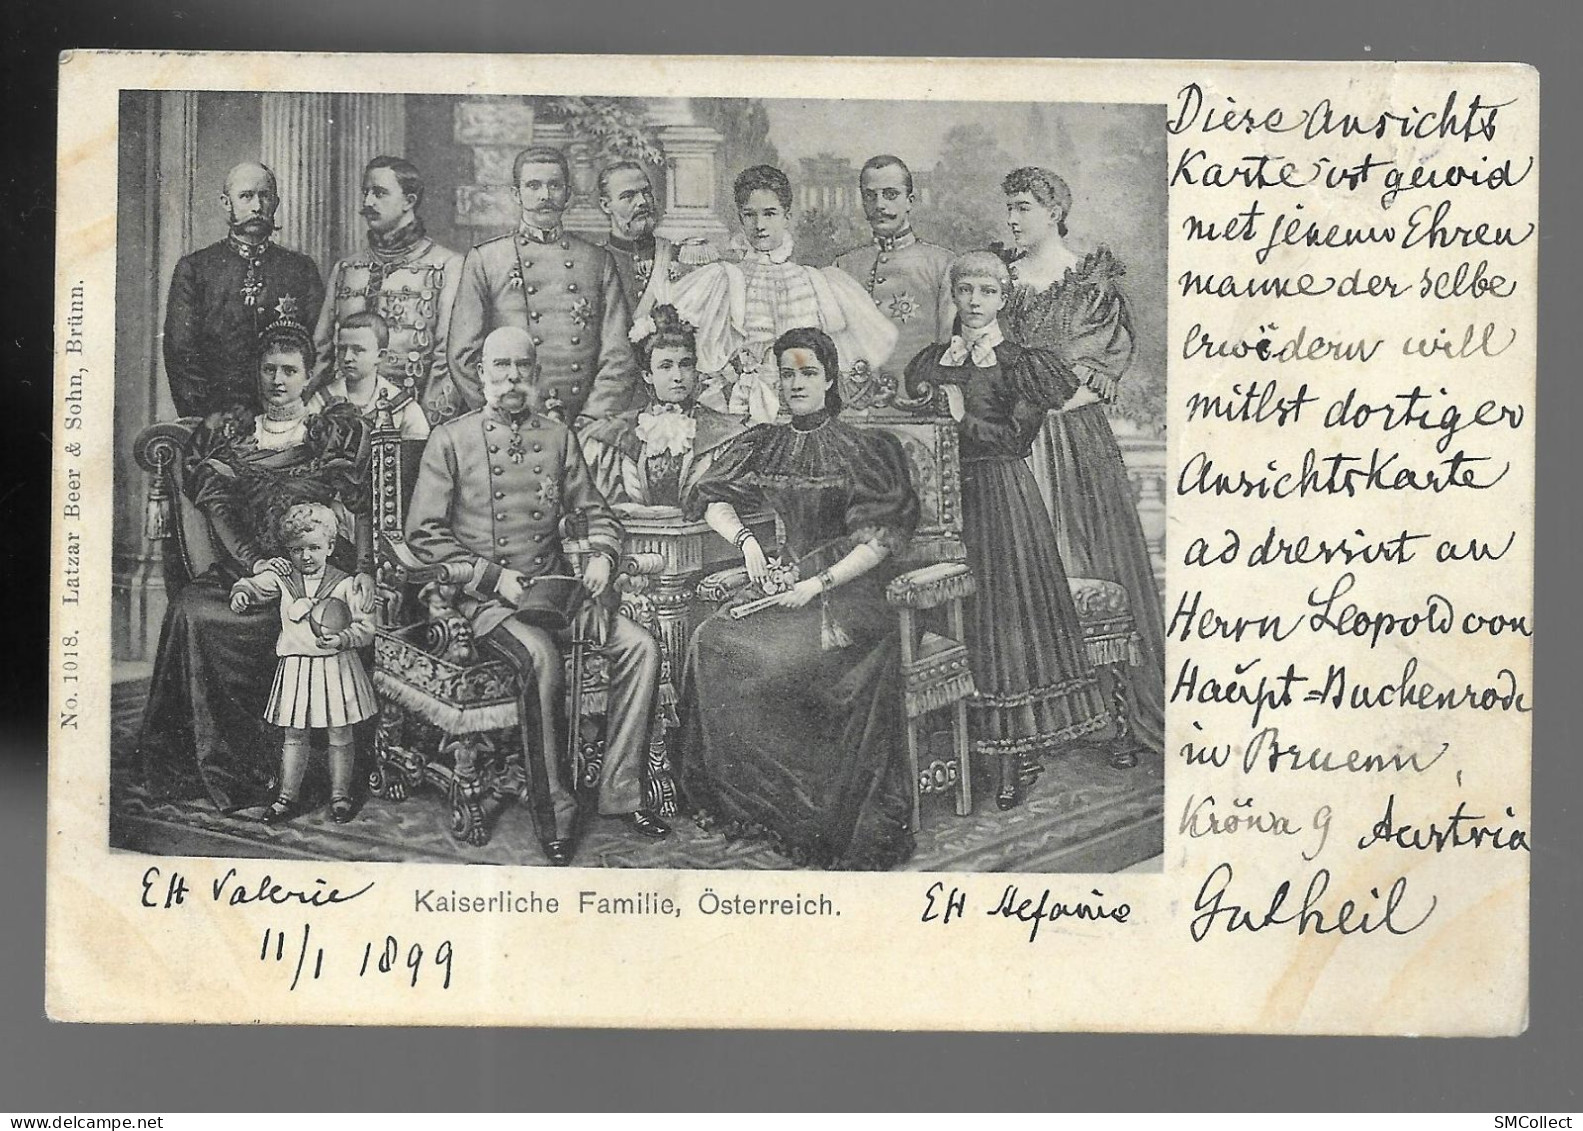 Diese Ansichts
Karte ist gewid
met jenem Ehren
manne der selbe
erwiedern will
mitlst dortiger
AnsichtsKarte
addressirt an
Herrn Leopold von
Haupt=Buchenrode
in Bruenn,
Kröna 9 Austria
Gutheil
No. 1018. Latzar Beer & Sohn, Brünn.
EH Valerie Kaiserliche Familie, Österreich. EH Stefanie
11/1 1899
SMCollect